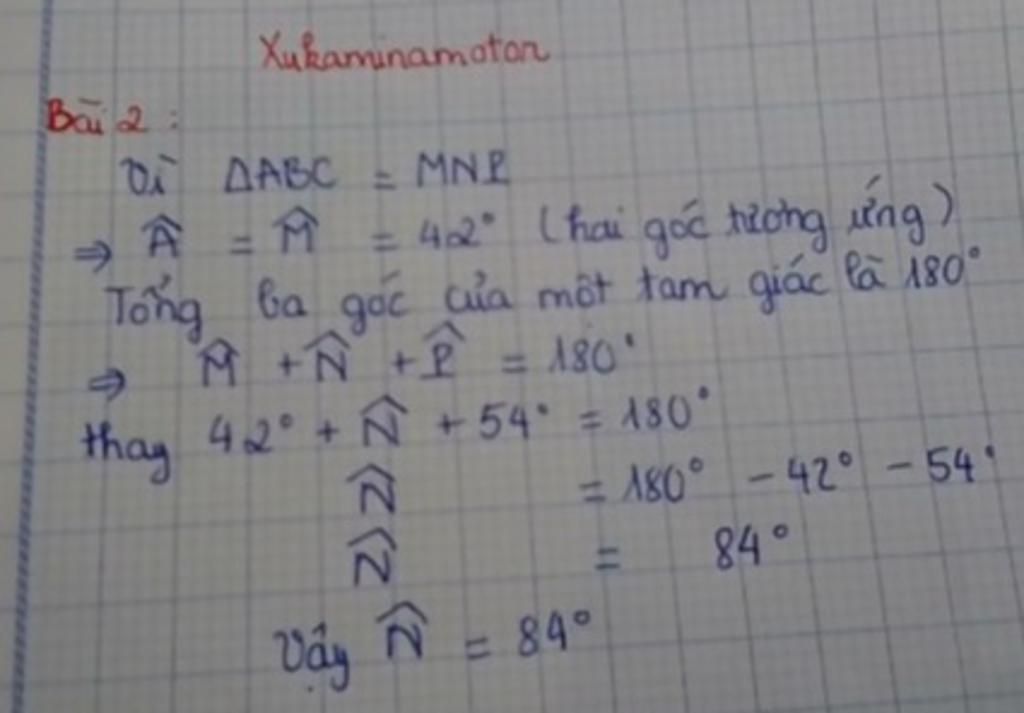 Xukaminamoton
Bài 2 :
Vì ΔABC = MNP
⇒ Â = M̂ = 42° (hai góc tương ứng)
Tổng ba góc của một tam giác là 180°
⇒ M̂ + N̂ + P̂ = 180°
thay 42° + N̂ + 54° = 180°
N̂ = 180° - 42° - 54°
N̂ = 84°
Vậy N̂ = 84°